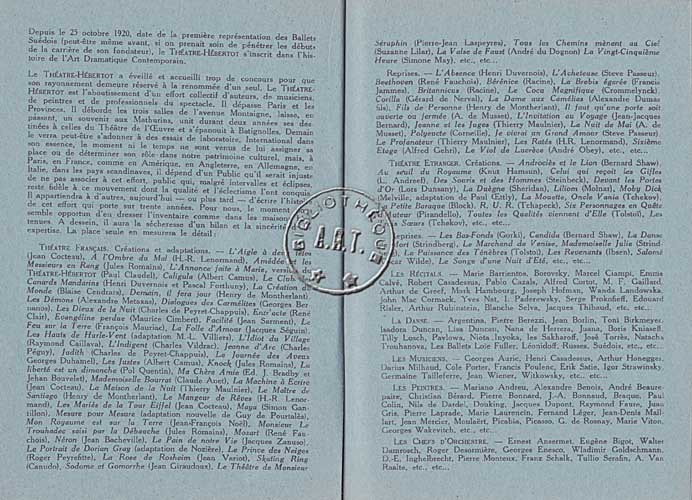 Depuis le 25 octobre 1920, date de la première représentation des Ballets
Suédois (peut-être même avant, si on prenait soin de pénétrer les débuts
de la carrière de son fondateur), le THÉATRE-HÉBERTOT s'inscrit dans l'his-
toire de l'Art Dramatique Contemporain.
Le THÉATRE-HÉBERTOT a éveillé et accueilli trop de concours pour que
son rayonnement demeure réservé à la renommée d'un seul. Le THÉATRE-
HÉBERTOT est l'aboutissement d'un effort collectif d'auteurs, de musiciens,
de peintres et de professionnels du spectacle. Il dépasse Paris et les
Provinces. Il déborde les trois salles de l'avenue Montaigne, laisse, en
passant, un souvenir aux Mathurins, unit durant deux années ses des-
tinées à celles du Théâtre de l'Œuvre et s'épanouit à Batignolles. Demain
le verra peut-être s'adonner à des essais de laboratoire. International dans
son essence, le moment ni le temps ne sont venus de lui assigner sa
place ou de déterminer son rôle dans notre patrimoine culturel, mais, à
Paris, en France, comme en Amérique, en Angleterre, en Allemagne, en
Italie, dans les pays scandinaves, il dépend d'un Public qu'il serait injuste
de ne pas associer à cet effort, public qui, malgré intervalles et éclipses,
reste fidèle à ce mouvement dont la qualité et l'éclectisme l'ont conquis.
Il appartiendra à d'autres, aujourd'hui — ou plus tard — d'écrire l'histoire
de cet effort qui porte sur trente années. Pour nous, le moment
semble opportun d'en dresser l'inventaire comme dans les maisons
tenues. A dessein, il aura la sécheresse d'un bilan et la sincérité
expertise. La place seule en mesurera le détail :
THÉATRE FRANÇAIS. Créations et adaptations. — L'Aigle à deux têtes
(Jean Cocteau), A l'Ombre du Mal (H.-R. Lenormand), Amédée et les
Messieurs en Rang (Jules Romains), L'Annonce faite à Marie, version
THÉATRE-HÉBERTOT (Paul Claudel), Caligula (Albert Camus), Le Club des
Canards Mandarins (Henri Duvernois et Pascal Forthuny), La Création du
Monde (Blaise Cendrars), Demain, il fera jour (Henry de Montherlant)
Les Démons (Alexandre Metaxas), Dialogues des Carmélites (Georges Ber-
nanos), Les Dieux de la Nuit (Charles de Peyret-Chappuis), Entr'acte (René
Clair), Evangéline perdue (Maurice Cimber), Facilité (Jean Sarment), Le
Feu sur la Terre (François Mauriac), La Folle d'Amour (Jacques Séguin),
Les Hauts de Hurle-Vent (adaptation M.-L. Villiers), L'Idiot du Village
(Raymond Caillava), L'Indigent (Charles Vildrac), Jeanne d'Arc (Charles
Péguy), Judith (Charles de Peyret-Chappuis), La Journée des Aveux
(Georges Duhamel), Les Justes (Albert Camus), Knock (Jules Romains), La
liberté est un dimanche (Pol Quentin), Ma Chère Amie (Ed. J. Bradby et
Jehan Bouvelet), Mademoiselle Bourrat (Claude Anet), La Machine à Ecrire
(Jean Cocteau), La Maison de la Nuit (Thierry Maulnier), Le Maître de
Santiago (Henry de Montherlant), Le Mangeur de Rêves (H.-R. Lenor-
mand), Les Mariés de la Tour Eiffel (Jean Cocteau), Maya (Simon Gan-
tillon), Mesure pour Mesure (adaptation nouvelle de Guy de Pourtalès),
Mon Royaume est sur la Terre (Jean-François Noël), Monsieur Le
Trouhadec saisi par la Débauche (Jules Romains), Mozart (René Fau-
chois), Néron (Jean Bacheville), Le Pain de notre Vie (Jacques Zanuso),
Le Portrait de Dorian Gray (adaptation de Nozière), Le Prince des Neiges
(Roger Peyrefitte), La Rose de Rosheim (Jean Variot), Skating Ring
(Canudo), Sodome et Gomorrhe (Jean Giraudoux), Le Théâtre de Monsieur
Séraphin (Pierre-Jean Laspeyres), Tous les Chemins mènent au Ciel
(Suzanne Lilar), La Valse de Faust (André du Dognon) La Vingt-Cinquième
Heure (Simone May), etc., etc...
Reprises. — L'Absence (Henri Duvernois), L'Acheteuse (Steve Passeur),
Beethoven (René Fauchois), Bérénice (Racine), La Brebis égarée (Francis
Jammes), Britannicus (Racine), Le Cocu Magnifique (Crommelynck)
Corilla (Gérard de Nerval), La Dame aux Camélias (Alexandre Dumas
fils), Fils de Personne (Henry de Montherlant), Il faut qu'une porte soit
ouverte ou fermée (A. de Musset), L'Invitation au Voyage (Jean-Jacques
Bernard), Jeanne et les Juges (Thierry Maulnier), La Nuit de Mai (A. de
Musset), Polyeucte (Corneille), Je vivrai un Grand Amour (Steve Passeur)
Le Profanateur (Thierry Maulnier), Les Ratés (H.R. Lenormand), Sixième
Etage (Alfred Gehri), Le Viol de Lucrèce (André Obey), etc., etc...
THÉATRE ETRANGER. Créations. — Androclès et le Lion (Bernard Shaw),
Au seuil du Royaume (Knut Hamsun), Celui qui reçoit les Gifles
(L. Andreef), Des Soors et des Hommes (Steinbeck), Devant les Portes
d'Or (Lors Dunsany), La Duègne (Sheridan), Liliom (Molnar), Moby Dick
(Melville, adaptation de Paul Estly), La Mouette, Oncle Vania (Tchekov),
La Petite Baraque (Block), R. U. R. (Tchapeck), Six Personnages en Quête
d'Auteur (Pirandello), Toutes les Qualités viennent d'Elle (Tolstoï), Les
Sœurs (Tchekov), etc., etc...
Reprises. — Les Bas-Fonds (Gorki), Candida (Bernard Shaw), La Danse
(Strindberg), Le Marchand de Venise, Mademoiselle Julie (Strind-
), La Puissance des Ténèbres (Tolstoï), Les Revenants (Ibsen), Salomé
Wilde), Le Songe d'une Nuit d'Eté, etc., etc...
LES RÉCITALS. — Marie Barrientos, Borovsky, Marcel Ciampi, Emma
Calvé, Robert Casadesus, Pablo Cazals, Alfred Cortot, M. F. Gaillard,
Arthur de Greef, Mark Hambourg, Joseph Hofman, Wanda Landowska,
John Mac Cormack, Yves Nat, I. Paderewsky, Serge Prokofieff, Edouard
Risler, Arthur Rubinstein, Blanche Selva, Jacques Thibaud, etc., etc...
LA DANSE. — Argentina, Pierre Berezzi, Jean Borlin, Toni Birkmeyer,
Isadora Duncan, Lisa Duncan, Nana de Herrera, Juana, Boris Kniaseff,
Tilly Losch, Pavlova, Nieta Inyoka, les Sakharoff, José Torrès, Natacha
Trouhanova, Les Ballets Loïe Fuller, Léonidoff, Russes, Suédois, etc., etc...
LES MUSICIENS. — Georges Auric, Henri Casadesus, Arthur Honegger,
Darius Milhaud, Cole Porter, Francis Poulenc, Erik Satie, Igor Strawinsky,
Germaine Tailleferre, Jean Wiener, Witkowsky, etc., etc...
LES PEINTRES. — Mariano Andreu, Alexandre Benois, André Beaure-
paire, Christian Bérard, Pierre Bonnard, J.-A. Bonnaud, Braque, Paul
Colin, Nils de Dardel, Drsiking, Jacques Dupont, Raymond Faure, Juan
Gris, Pierre Laprade, Marie Laurencin, Fernand Léger, Jean-Denis Mail-
lart, Jean Mercier, Moulaërt, Picabia, Picasso, G. de Rosnay, Marie Viton,
Georges Wakevitch, etc., etc...
LES CHEFS D'ORCHESTRE. — Ernest Ansermet, Eugène Bigot, Walter
Damrosch, Roger Desormière, Georges Enesco, Wladimir Goldschmann,
D.-E. Inghelbrecht, Pierre Monteux, Franz Schalk, Tullio Serafin, A. Van
Raalte, etc., etc...
BIBLIOTHÈQUE
A.R.T.